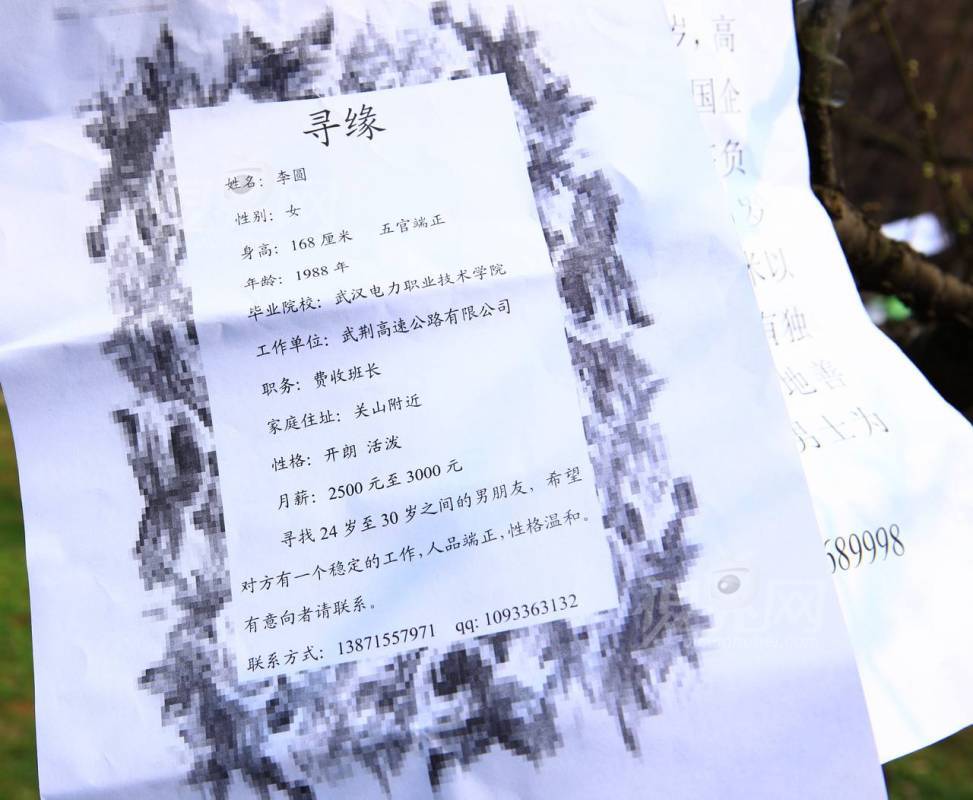 寻缘
姓名：李圆
性别：女
身高：168 厘米 五官端正
年龄：1988 年
毕业院校：武汉电力职业技术学院
工作单位：武荆高速公路有限公司
职务：费收班长
家庭住址：关山附近
性格：开朗 活泼
月薪：2500 元至 3000 元
寻找 24 岁至 30 岁之间的男朋友，希望
对方有一个稳定的工作，人品端正，性格温和。
有意向者请联系。
联系方式：13871557971 qq: 1093363132
岁，高
国企
负
岁
米以
有独
地善
男士为
689998